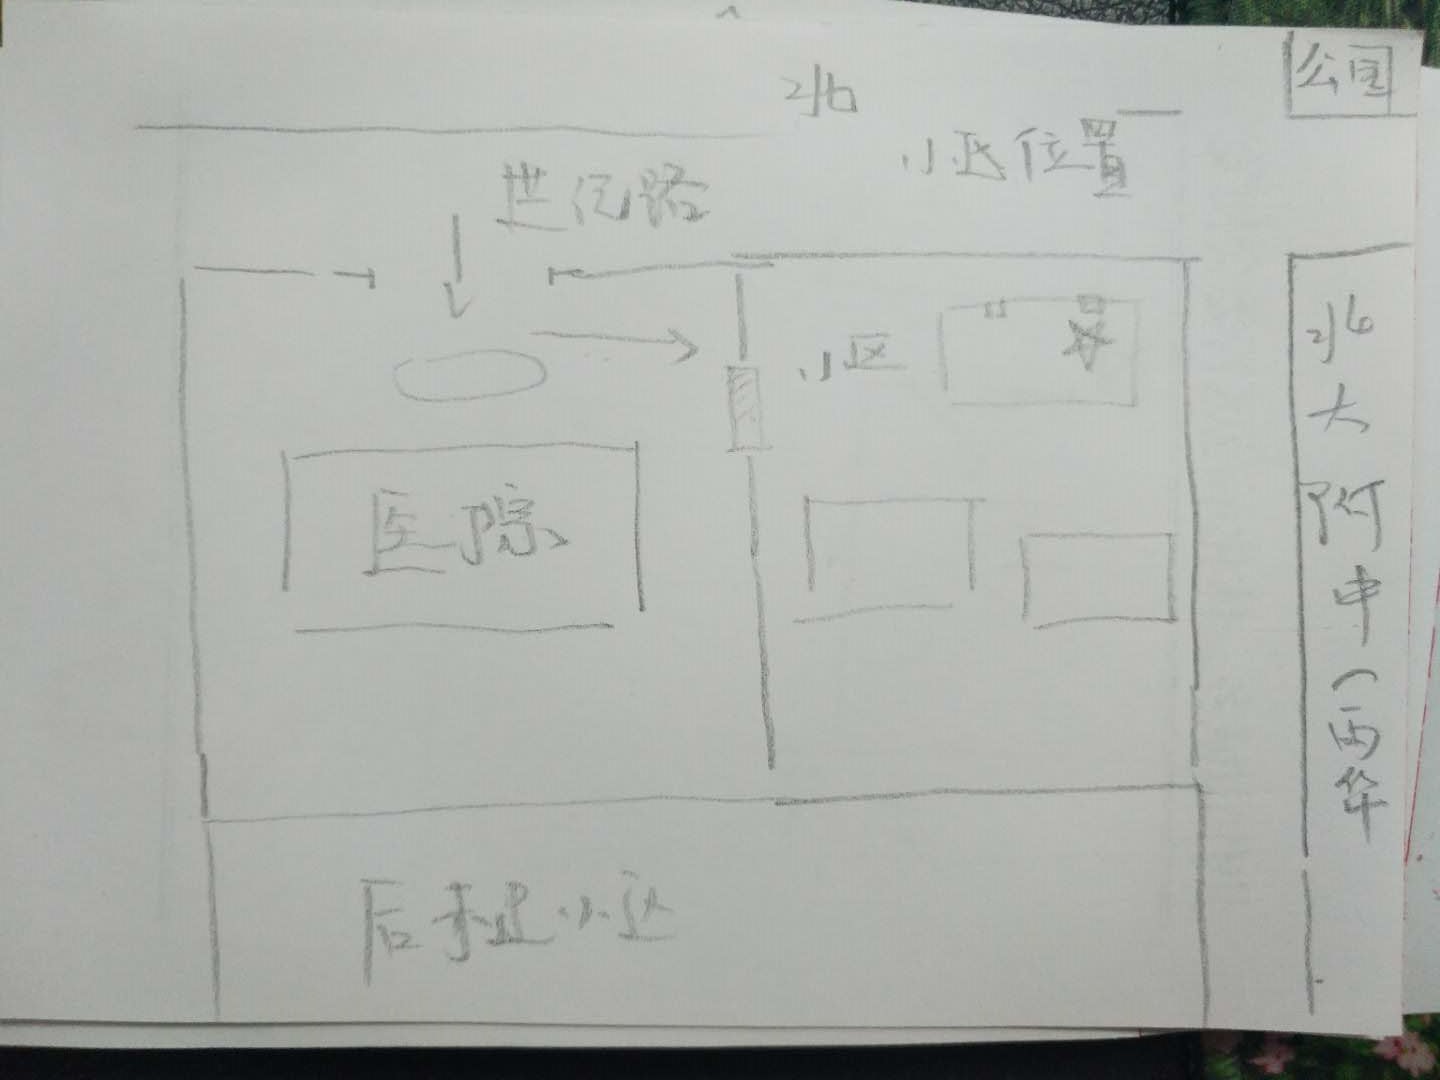 北
公园
小区位置
世纪路
小区
医院
北大附中(西华
后建小区